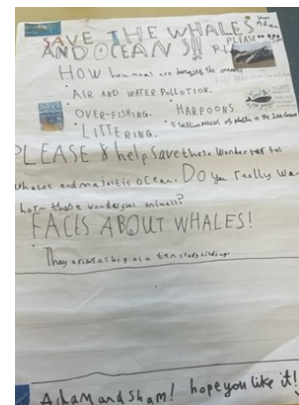 SAVE THE WHALES
AND OCEANS!!
PLEASE
HOW humans are damaging the oceans
· AIR AND WATER POLLUTION.
· OVER-FISHING. · HARPOONS.
· LITTERING. · 5 trillion pieces of plastic in the sea
PLEASE help save these wonderful
whales and majestic ocean. DO you really wa
harm these wonderous animals?
FACTS ABOUT WHALES!
· They are as big as a ten story building.
Adam and Sham! hope you like it!